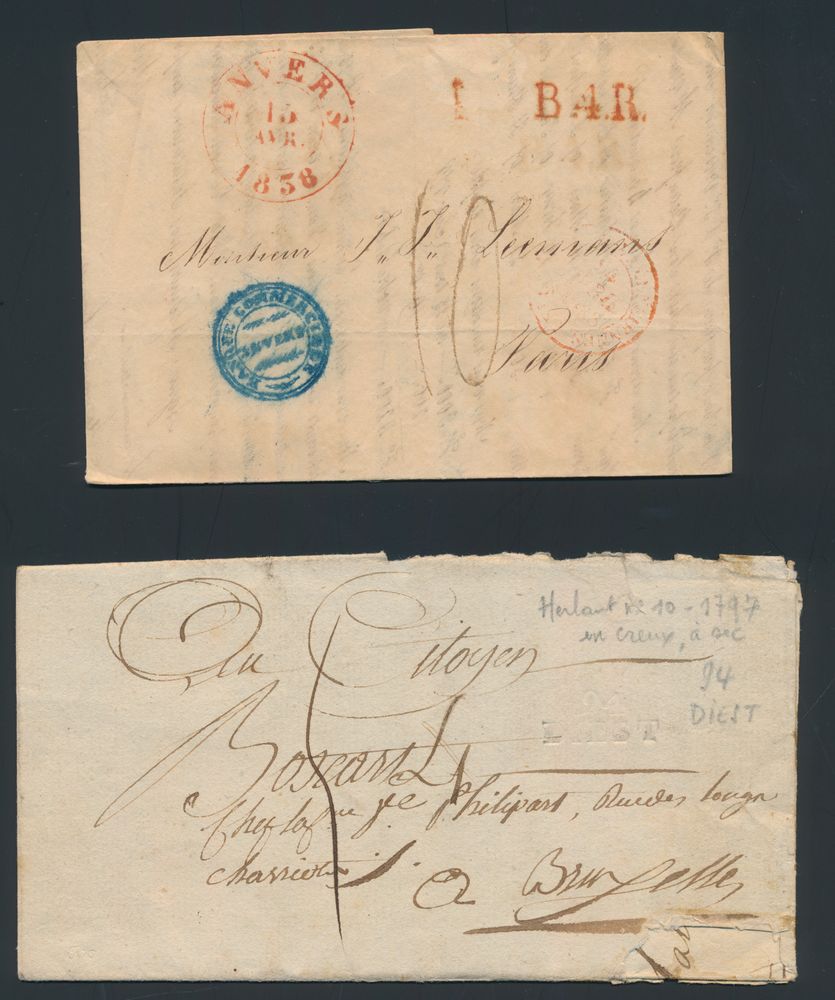 ANVERS
15
AVR.
1838
B 4.R.
Monsieur J. J. Leemans
10
Paris
BANQUE COMMERCIALE
ANVERS
Herlant n° 10 - 1797
en creux, à sec
94
DIEST
Au Citoyen
94
DIEST
Boscart
Chef la
Philipart, Rue des longs
charriots
a Bruxelles